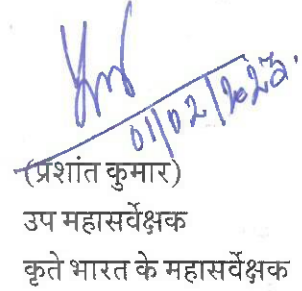 01/02/2023.
(प्रशांत कुमार)
उप महासर्वेक्षक
कृते भारत के महासर्वेक्षक